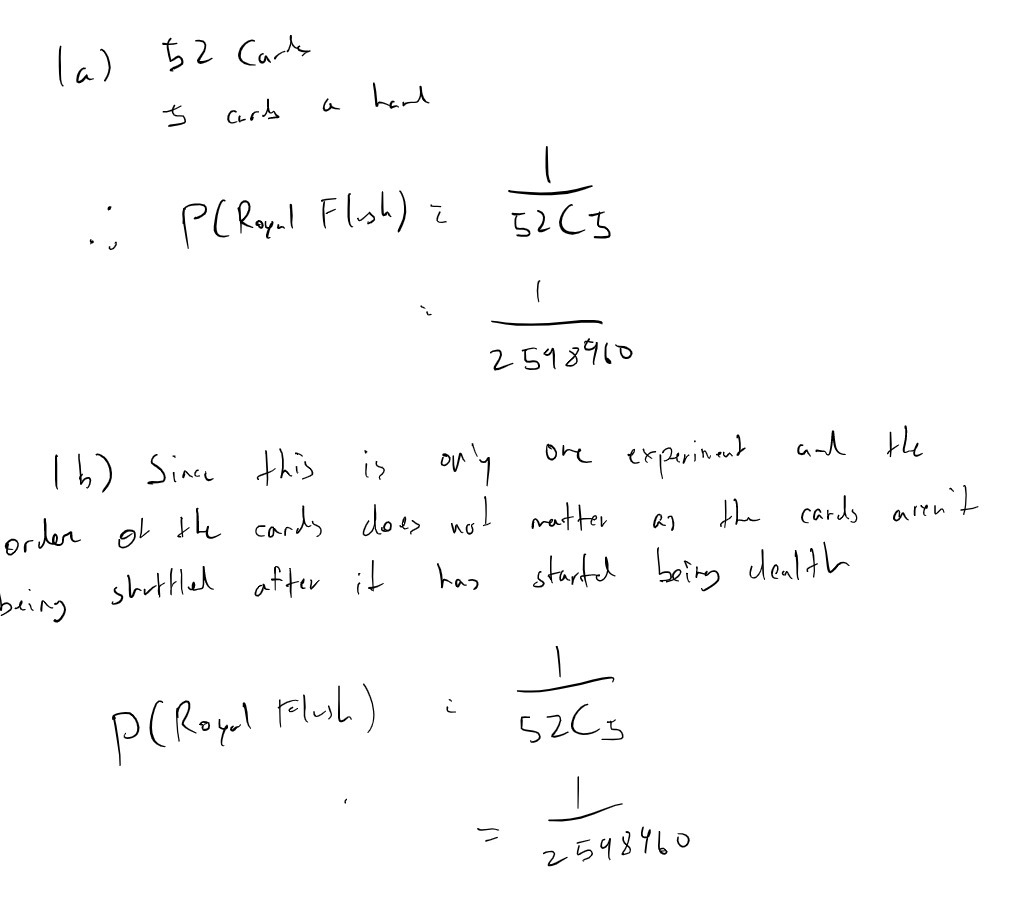 1a) 52 Cards
5 cards a hand
∴ P(Royal Flush) = 1/52C5
= 1/2598960
1b) Since this is only one experiment and the
order of the cards does not matter as the cards aren't
being shuffled after it has started being dealth
P(Royal Flush) = 1/52C5
= 1/2598960